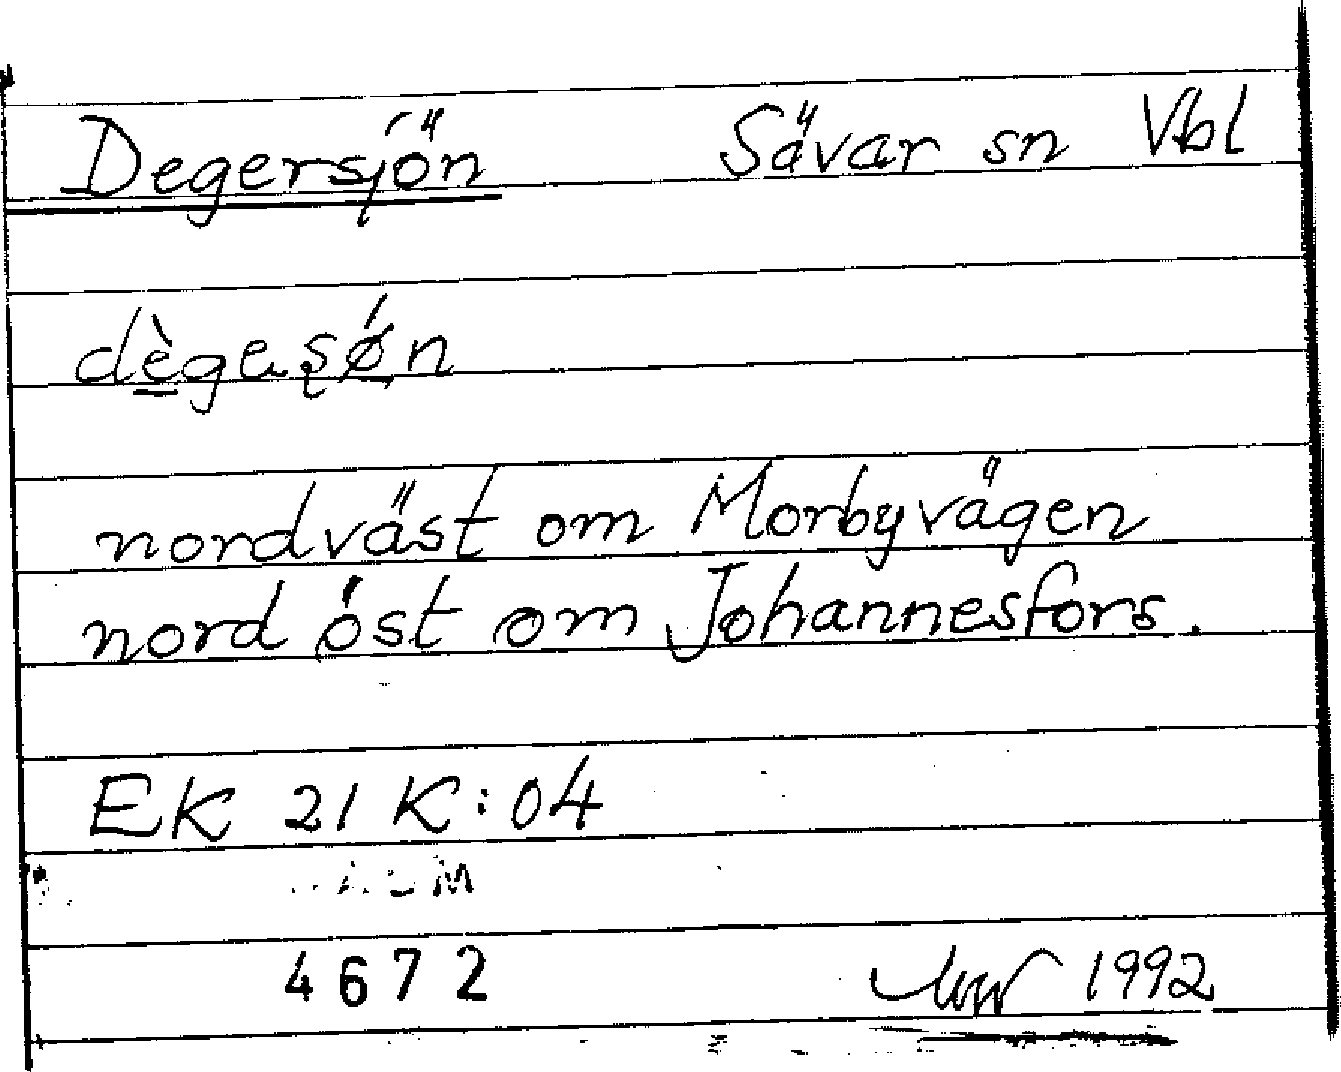 Degersjön Sävar sn Vbl
dègaşǿn
nordväst om Morbyvägen
nordöst om Johannesfors.
EK 21 K:04
4672 1992